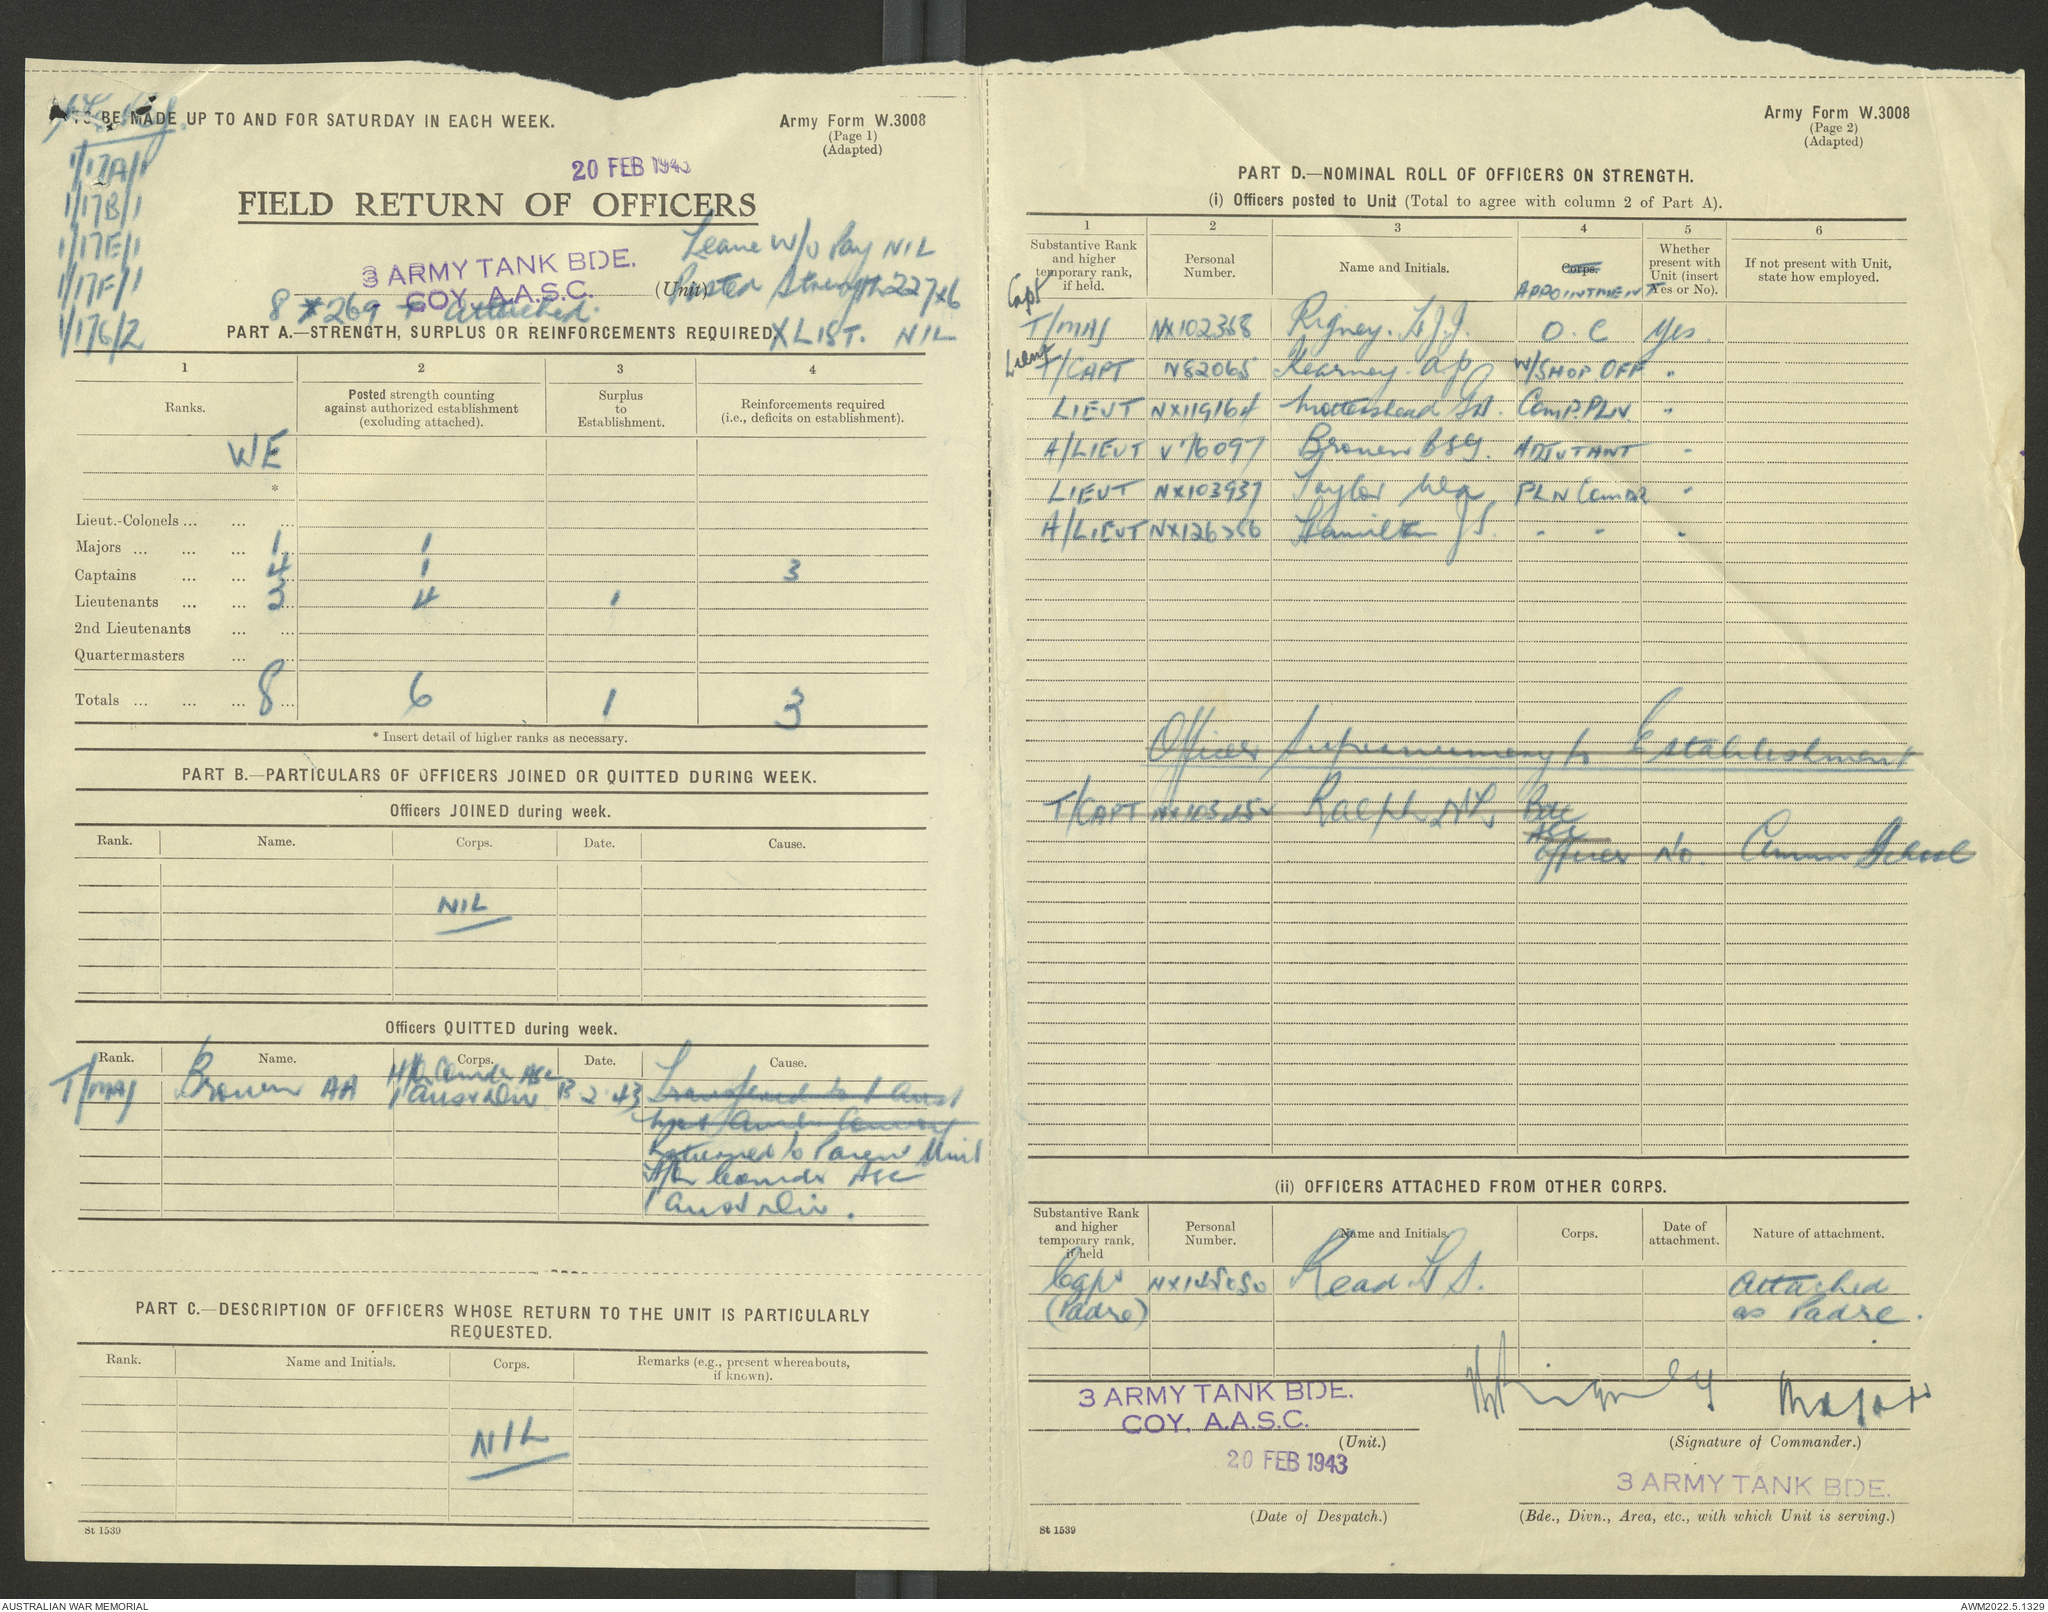 TO BE MADE UP TO AND FOR SATURDAY IN EACH WEEK.
Army Form W.3008
(Page 1)
(Adapted)
1/17A/1
1/17B/1
1/17E/1
1/17F/1
1/17G/2
20 FEB 1943
FIELD RETURN OF OFFICERS
Leave W/o Pay NIL
3 ARMY TANK BDE.
COY. A.A.S.C.
(Unit)
Posted Strength 227+6
8 + 269 + attached.
X LIST. NIL
PART A.—STRENGTH, SURPLUS OR REINFORCEMENTS REQUIRED
1 2 3 4
Ranks. Posted strength counting against authorized establishment (excluding attached). Surplus to Establishment. Reinforcements required (i.e., deficits on establishment).
WE
*
Lieut.-Colonels ... ... ...
Majors ... ... ... 1 1
Captains ... ... 4 1 3
Lieutenants ... ... 3 4 1
2nd Lieutenants ... ...
Quartermasters ... ...
Totals ... ... ... 8 6 1 3
* Insert detail of higher ranks as necessary.
PART B.—PARTICULARS OF OFFICERS JOINED OR QUITTED DURING WEEK.
Officers JOINED during week.
Rank. Name. Corps. Date. Cause.
NIL
Officers QUITTED during week.
Rank. Name. Corps. Date. Cause.
T/MAJ Brown AA H/Q Comdr ASC 1 Aust Div 13.2.43 Transferred to 1 Aust
Returned to Parent Unit
H/Q Comdr ASC
1 Aust Div.
PART C.—DESCRIPTION OF OFFICERS WHOSE RETURN TO THE UNIT IS PARTICULARLY
REQUESTED.
Rank. Name and Initials. Corps. Remarks (e.g., present whereabouts, if known).
NIL
St 1539
Army Form W.3008
(Page 2)
(Adapted)
PART D.—NOMINAL ROLL OF OFFICERS ON STRENGTH.
(i) Officers posted to Unit (Total to agree with column 2 of Part A).
1 2 3 4 5 6
Substantive Rank and higher temporary rank, if held. Personal Number. Name and Initials. Corps. APPOINTMENT Whether present with Unit (insert Yes or No). If not present with Unit, state how employed.
Capt
T/MAJ NX102368 Rigney. L.J.J. O.C Yes.
Lieut
T/CAPT N82065 Kearney. A P W/SHOP OFF "
LIEUT NX119164 Mottershead Comp. PLN. "
A/LIEUT V76097 Brown B S G. ADJUTANT "
LIEUT NX103937 Taylor PLN Comdr "
A/LIEUT NX126356 Hamilton J S. " " "
Officer Supernumery to Establishment
T/CAPT Ralph Bde
ASC
Officer No. Ammn School
(ii) OFFICERS ATTACHED FROM OTHER CORPS.
Substantive Rank and higher temporary rank, if held Personal Number. Name and Initials. Corps. Date of attachment. Nature of attachment.
Capt Read Attached
(Padre) as Padre.
3 ARMY TANK BDE.
COY. A.A.S.C.
Rigney Major
(Unit.)
(Signature of Commander.)
20 FEB 1943
3 ARMY TANK BDE.
(Date of Despatch.)
(Bde., Divn., Area, etc., with which Unit is serving.)
St 1539
AUSTRALIAN WAR MEMORIAL
AWM2022.5.1329